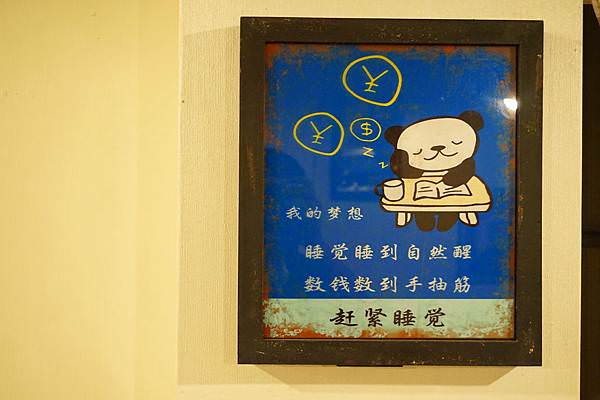 ¥
¥
$
z
z
我的梦想
睡觉睡到自然醒
数钱数到手抽筋
赶紧睡觉